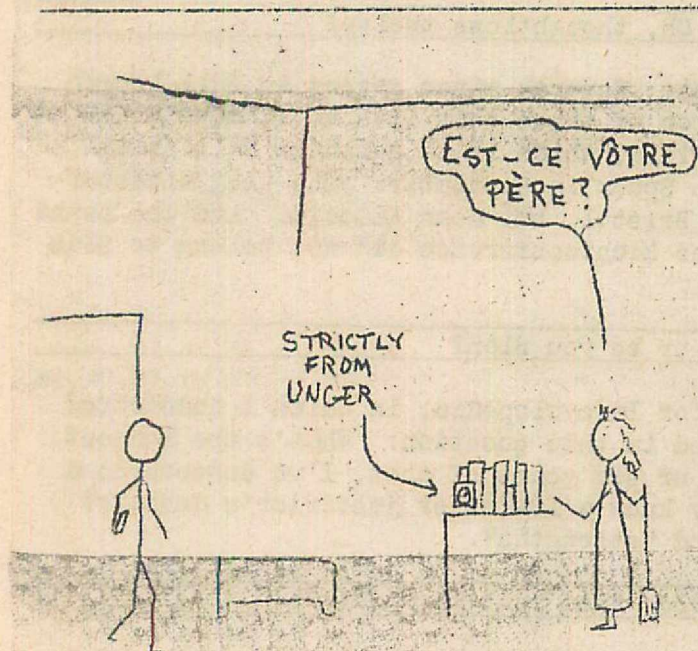 EST-CE VÔTRE
PÈRE?
STRICTLY
FROM
UNGER